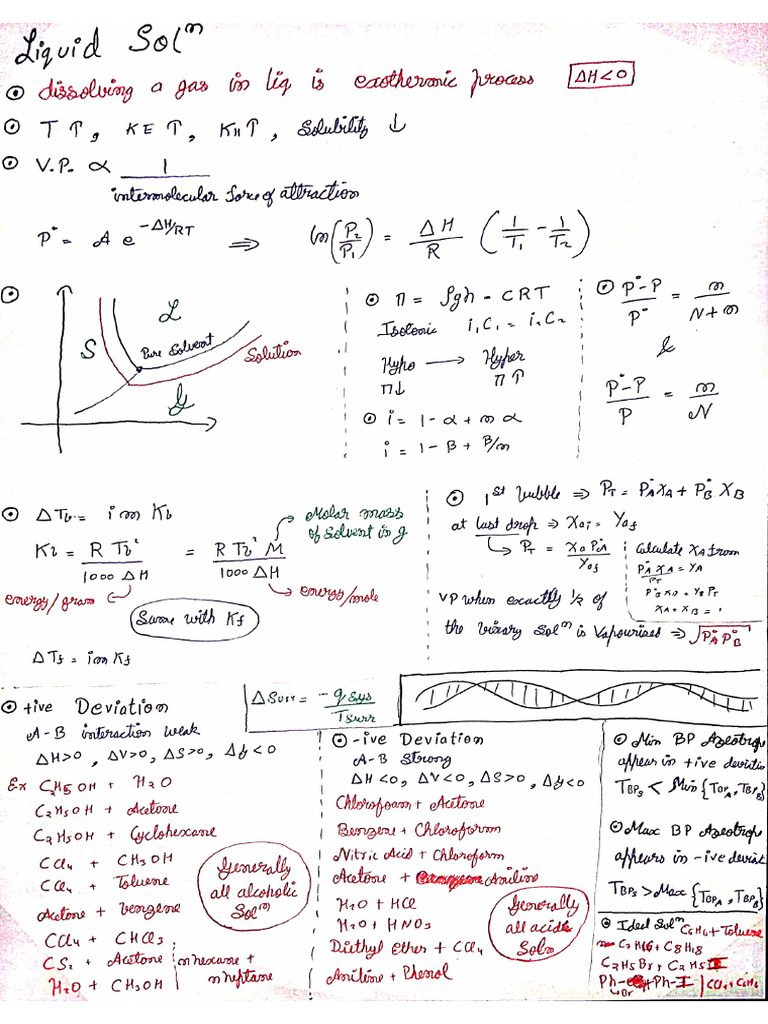 Liquid Solⁿ
⊙ dissolving a gas in liq is exothermic process ΔH<0
⊙ T ↑, KE ↑, K_H ↑, Solubility ↓
⊙ V.P. ∝ 1 / intermolecular force of attraction
P° = A e^(-ΔH/RT) ⇒ ln(P₂/P₁) = ΔH/R (1/T₁ - 1/T₂)
⊙
L
S
Pure Solvent
Solution
G
⊙ π = ρgh = CRT
Isotonic i₁C₁ = i₂C₂
Hypo → Hyper
π↓ π↑
⊙ i = 1 - α + n α
i = 1 - β + β/n
⊙ (P°-P)/P° = n/(N+n)
&
(P°-P)/P = n/N
⊙ ΔT_b = i m K_b
K_b = R T_b²/(1000 ΔH) = R T_b² M/(1000 ΔH)
Molar mass
of Solvent in g
energy/gram
energy/mole
Same with K_f
ΔT_f = i m K_f
⊙ 1st bubble ⇒ P_T = P°_A X_A + P°_B X_B
at last drop ⇒ X_ai = Y_af
P_T = X_a P°_A / Y_af
Calculate X_A from
P°_A X_A / P_T = Y_A
P°_B X_B = Y_B P_T
X_A + X_B = 1
VP when exactly ½ of
the binary Solⁿ is Vapourises ⇒ √(P°_A P°_B)
ΔS_surr = -q_sys / T_surr
⊙ +ive Deviation
A-B interaction weak
ΔH>0, ΔV>0, ΔS>0, Δg<0
Ex C₂H₅OH + H₂O
C₂H₅OH + Acetone
C₂H₅OH + Cyclohexane
CCl₄ + CH₃OH
CCl₄ + Toluene
Acetone + benzene
CCl₄ + CHCl₃
CS₂ + Acetone
H₂O + CH₃OH
n hexane +
n heptane
Generally
all alcoholic
Solⁿ
⊙ -ive Deviation
A-B Strong
ΔH<0, ΔV<0, ΔS>0, Δg<0
Chlorofoam + Acetone
Benzene + Chloroform
Nitric Acid + Chloroform
Acetone + Aniline
H₂O + HCl
H₂O + HNO₃
Diethyl Ether + CCl₄
Aniline + Phenol
Generally
all acidic
Soln
⊙ Min BP Azeotrop
appears in +ive deviatio
T_BPs < Min {T_BPA, T_BPB}
⊙ Max BP Azeotrop
appears in -ive deviat
T_BPs > Max {T_BPA, T_BPB}
⊙ Ideal Solⁿ C₆H₆ + Toluene
C₇H₁₆ + C₈H₁₈
C₂H₅Br + C₂H₅I
Ph-Cl + Ph-I | CCl₄ + C₆H₆
Br